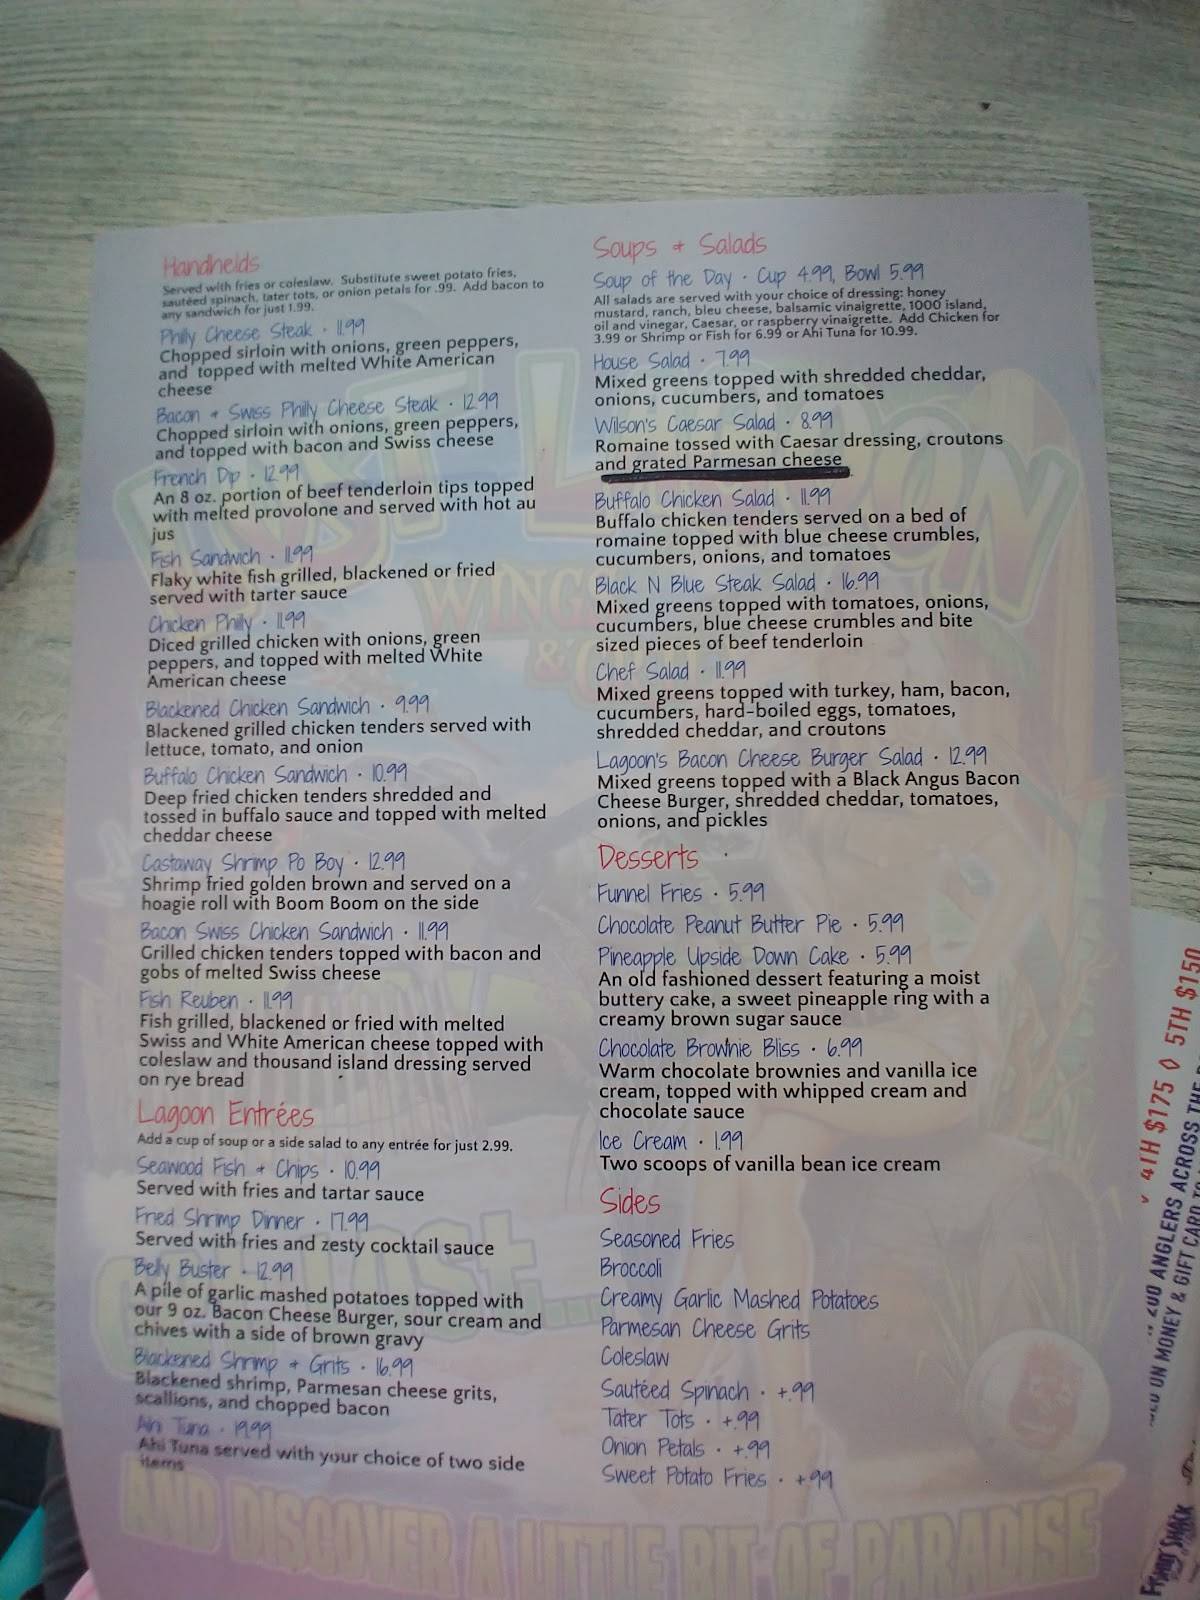 Handhelds
Served with fries or coleslaw. Substitute sweet potato fries,
sautéed spinach, tater tots, or onion petals for .99. Add bacon to
any sandwich for just 1.99.
Philly Cheese Steak · 11.99
Chopped sirloin with onions, green peppers,
and topped with melted White American
cheese
Bacon + Swiss Philly Cheese Steak · 12.99
Chopped sirloin with onions, green peppers,
and topped with bacon and Swiss cheese
French Dip · 12.99
An 8 oz. portion of beef tenderloin tips topped
with melted provolone and served with hot au
jus
Fish Sandwich · 11.99
Flaky white fish grilled, blackened or fried
served with tarter sauce
Chicken Philly · 11.99
Diced grilled chicken with onions, green
peppers, and topped with melted White
American cheese
Blackened Chicken Sandwich · 9.99
Blackened grilled chicken tenders served with
lettuce, tomato, and onion
Buffalo Chicken Sandwich · 10.99
Deep fried chicken tenders shredded and
tossed in buffalo sauce and topped with melted
cheddar cheese
Castaway Shrimp Po Boy · 12.99
Shrimp fried golden brown and served on a
hoagie roll with Boom Boom on the side
Bacon Swiss Chicken Sandwich · 11.99
Grilled chicken tenders topped with bacon and
gobs of melted Swiss cheese
Fish Reuben · 11.99
Fish grilled, blackened or fried with melted
Swiss and White American cheese topped with
coleslaw and thousand island dressing served
on rye bread
Lagoon Entrées
Add a cup of soup or a side salad to any entrée for just 2.99.
Seawood Fish + Chips · 10.99
Served with fries and tartar sauce
Fried Shrimp Dinner · 17.99
Served with fries and zesty cocktail sauce
Belly Buster · 12.99
A pile of garlic mashed potatoes topped with
our 9 oz. Bacon Cheese Burger, sour cream and
chives with a side of brown gravy
Blackened Shrimp + Grits · 16.99
Blackened shrimp, Parmesan cheese grits,
scallions, and chopped bacon
Ahi Tuna · 19.99
Ahi Tuna served with your choice of two side
items
Soups + Salads
Soup of the Day · Cup 4.99, Bowl 5.99
All salads are served with your choice of dressing: honey
mustard, ranch, bleu cheese, balsamic vinaigrette, 1000 island,
oil and vinegar, Caesar, or raspberry vinaigrette. Add Chicken for
3.99 or Shrimp or Fish for 6.99 or Ahi Tuna for 10.99.
House Salad · 7.99
Mixed greens topped with shredded cheddar,
onions, cucumbers, and tomatoes
Wilson's Caesar Salad · 8.99
Romaine tossed with Caesar dressing, croutons
and grated Parmesan cheese
Buffalo Chicken Salad · 11.99
Buffalo chicken tenders served on a bed of
romaine topped with blue cheese crumbles,
cucumbers, onions, and tomatoes
Black N Blue Steak Salad · 16.99
Mixed greens topped with tomatoes, onions,
cucumbers, blue cheese crumbles and bite
sized pieces of beef tenderloin
Chef Salad · 11.99
Mixed greens topped with turkey, ham, bacon,
cucumbers, hard-boiled eggs, tomatoes,
shredded cheddar, and croutons
Lagoon's Bacon Cheese Burger Salad · 12.99
Mixed greens topped with a Black Angus Bacon
Cheese Burger, shredded cheddar, tomatoes,
onions, and pickles
Desserts
Funnel Fries · 5.99
Chocolate Peanut Butter Pie · 5.99
Pineapple Upside Down Cake · 5.99
An old fashioned dessert featuring a moist
buttery cake, a sweet pineapple ring with a
creamy brown sugar sauce
Chocolate Brownie Bliss · 6.99
Warm chocolate brownies and vanilla ice
cream, topped with whipped cream and
chocolate sauce
Ice Cream · 1.99
Two scoops of vanilla bean ice cream
Sides
Seasoned Fries
Broccoli
Creamy Garlic Mashed Potatoes
Parmesan Cheese Grits
Coleslaw
Sautéed Spinach · +.99
Tater Tots · +.99
Onion Petals · +.99
Sweet Potato Fries · +.99
LOST LAGOON
WINGS
&
AND DISCOVER A LITTLE BIT OF PARADISE
4TH $175 ◊ 5TH $150
200 ANGLERS ACROSS THE
ON MONEY & GIFT CARD TO
SHACK